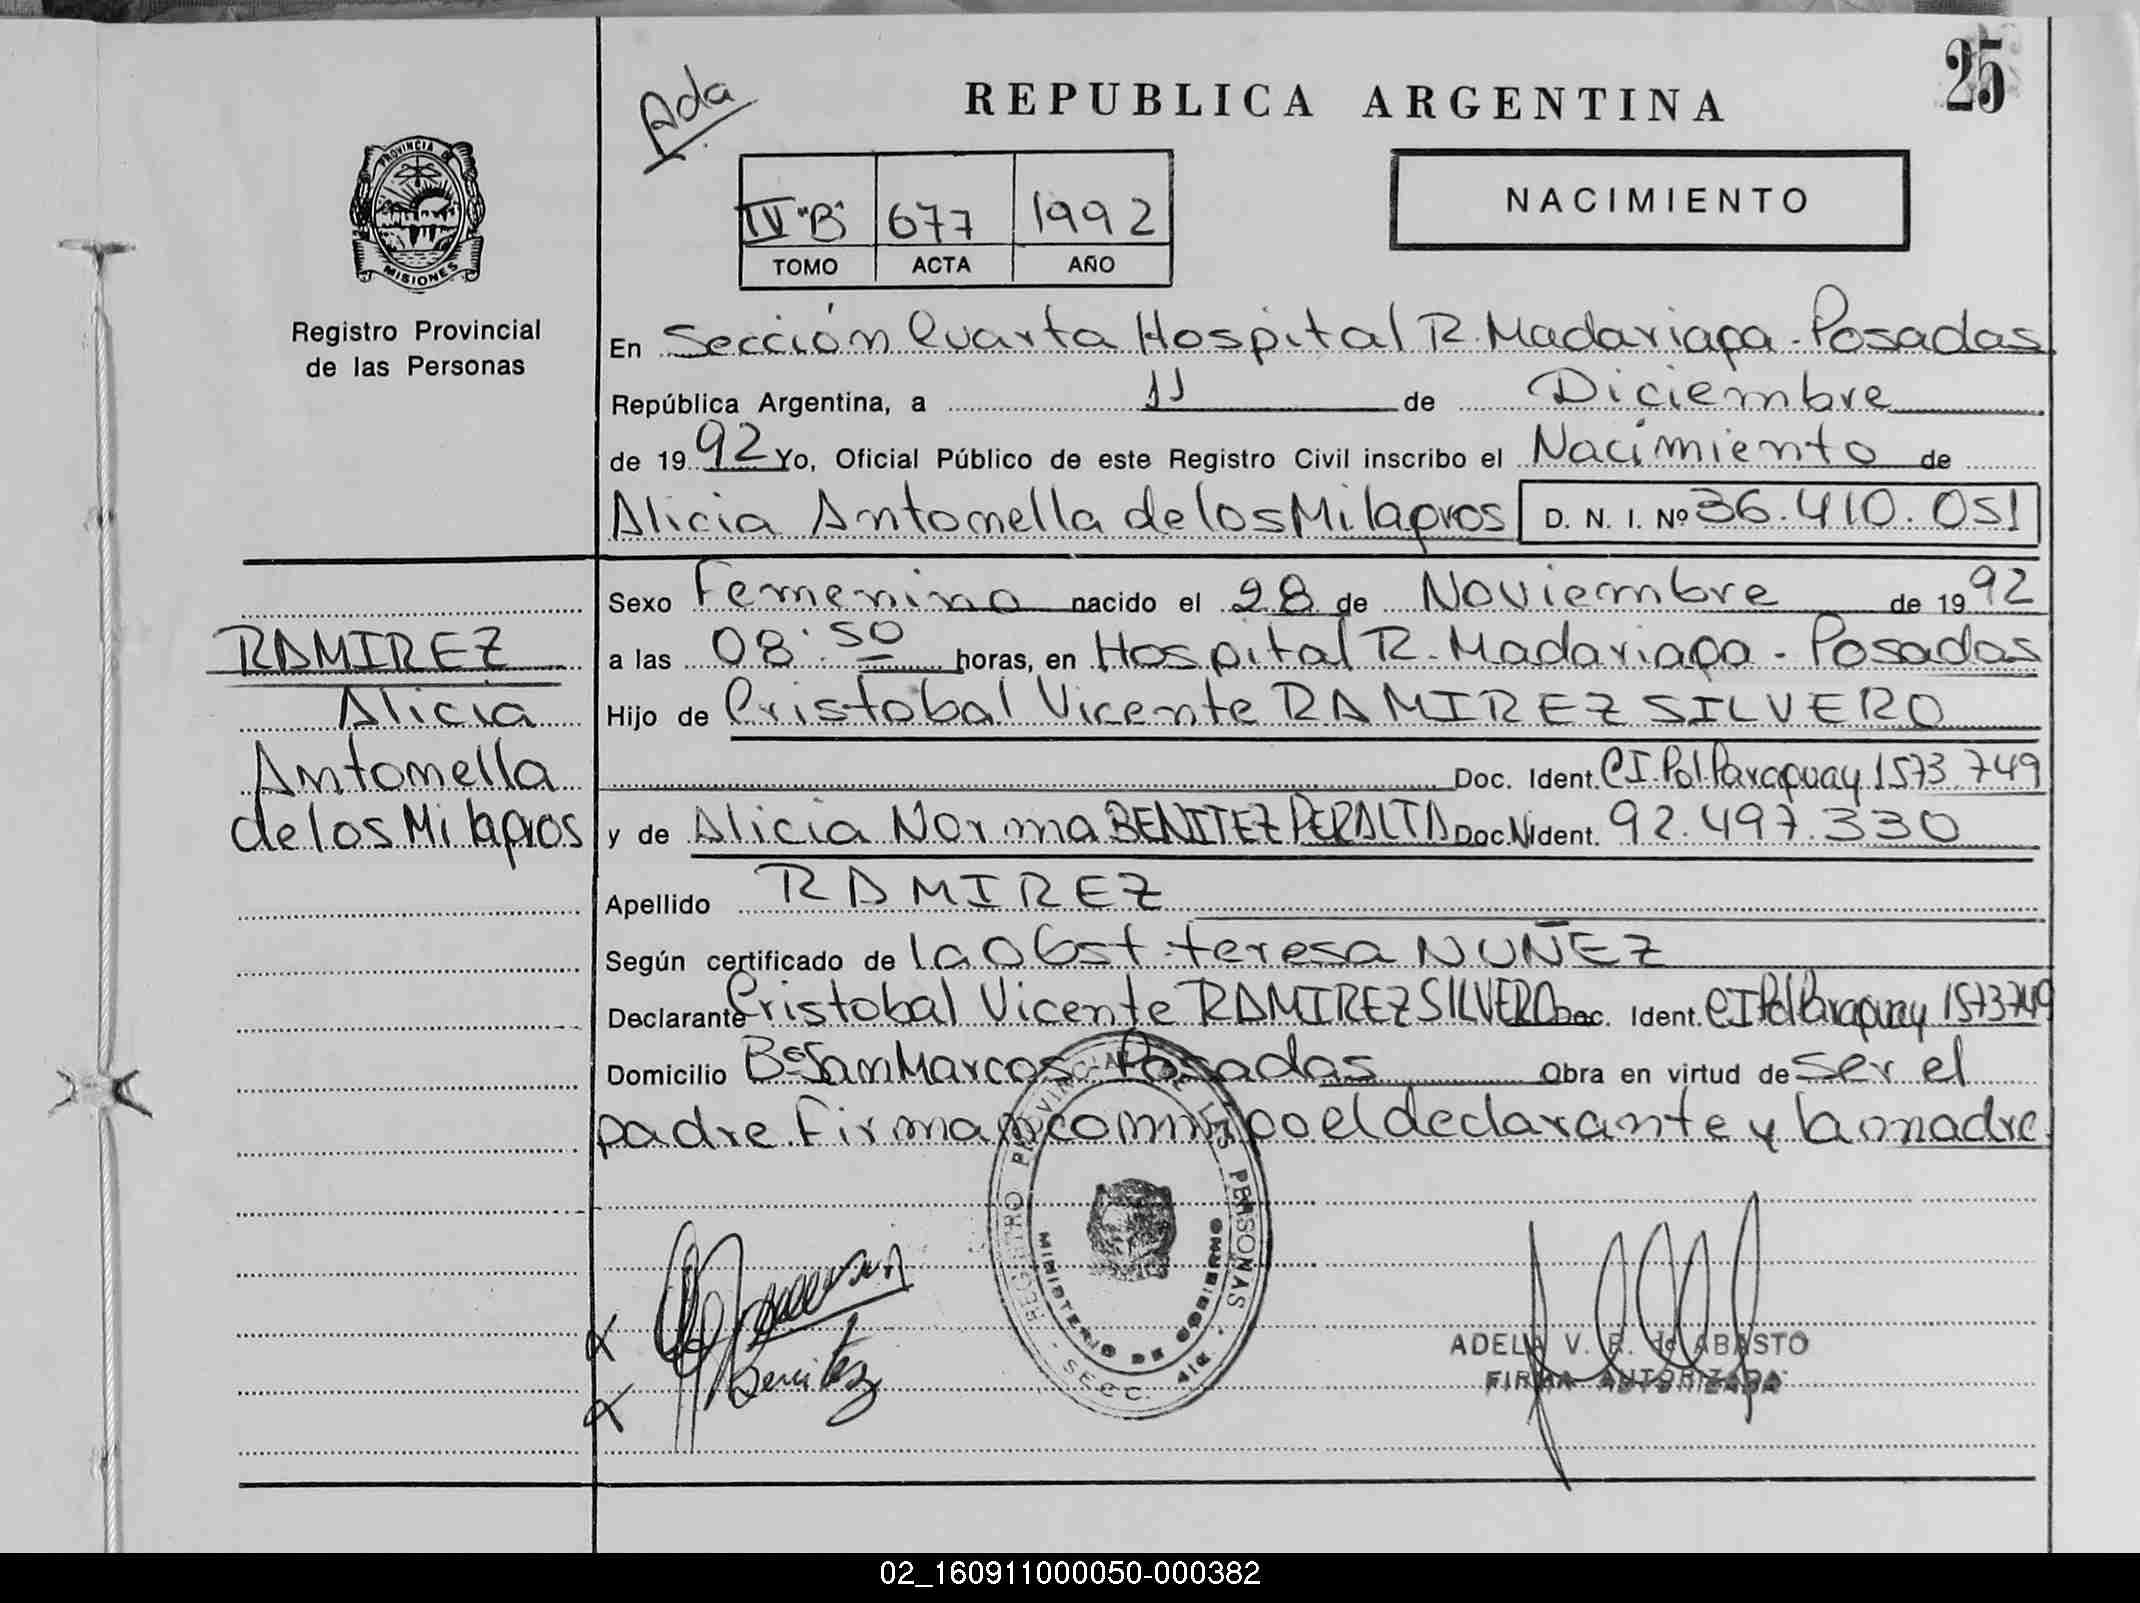 25
Ada
REPUBLICA ARGENTINA
PROVINCIA DE
MISIONES
IV "B" 677 1992
TOMO ACTA AÑO
NACIMIENTO
Registro Provincial
de las Personas
En Sección Cuarta Hospital R. Madariaga - Posadas
República Argentina, a 11 de Diciembre
de 1992 Yo, Oficial Público de este Registro Civil inscribo el Nacimiento de
Alicia Antonella de los Milagros D. N. I. Nº 36.410.051
Sexo Femenino nacido el 28 de Noviembre de 1992
RAMIREZ
Alicia
Antonella
de los Milagros
a las 08:50 horas, en Hospital R. Madariaga - Posadas
Hijo de Cristobal Vicente RAMIREZ SILVERO
Doc. Ident. CI. Pol. Paraguay 1573.749
y de Alicia Norma BENITEZ PERALTA Doc. N Ident. 92.497.330
Apellido RAMIREZ
Según certificado de la Obst. teresa NUÑEZ
Declarante Cristobal Vicente RAMIREZ SILVERO Doc. Ident. CI Pol Paraguay 1573749
Domicilio Bº San Marcos Posadas Obra en virtud de ser el
padre. Firman conmigo el declarante y la madre
REGISTRO PROVINCIAL DE LAS PERSONAS
MINISTERIO DE GOBIERNO
SECC. 4ta.
Benitez
ADELA V. R. de ABASTO
FIRMA AUTORIZADA
02_160911000050-000382